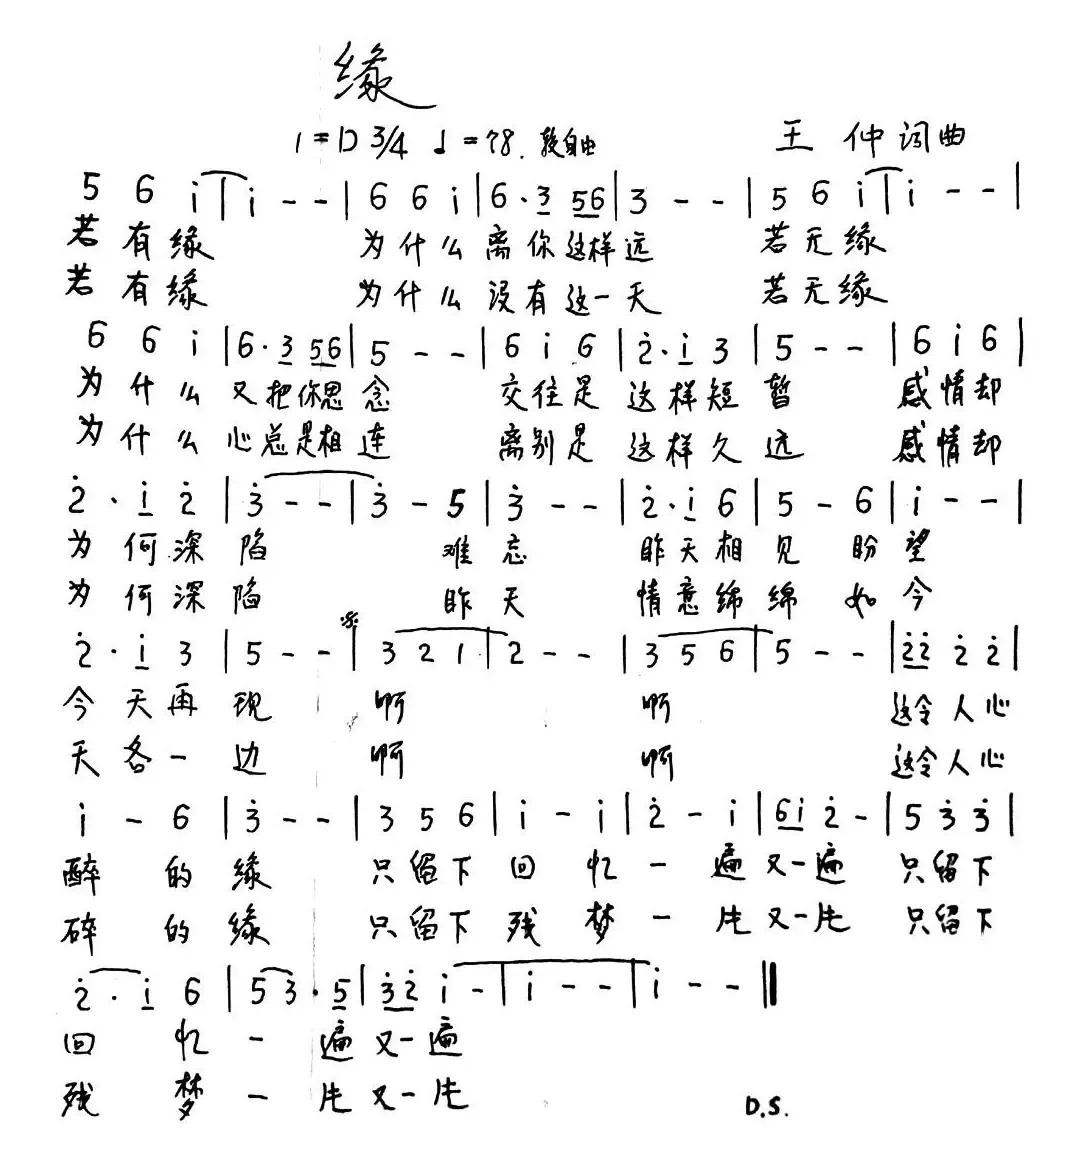 缘
1=D 3/4 ♩=78. 较自由 王 仲 词曲
5 6 i | i - - | 6 6 i | 6 · 3 56 | 3 - - | 5 6 i | i - - |
若 有 缘 为 什 么 离 你 这 样 远 若 无 缘
若 有 缘 为 什 么 没 有 这 一 天 若 无 缘
6 6 i | 6 · 3 56 | 5 - - | 6 i 6 | 2̇ · i 3 | 5 - - | 6 i 6 |
为 什 么 又 把 你 思 念 交 往 是 这 样 短 暂 感 情 却
为 什 么 心 总 是 相 连 离 别 是 这 样 久 远 感 情 却
2̇ · i 2̇ | 3̇ - - | 3̇ - 5 | 3̇ - - | 2̇ · i 6 | 5 - 6 | i - - |
为 何 深 陷 难 忘 昨 天 相 见 盼 望
为 何 深 陷 昨 天 情 意 绵 绵 如 今
2̇ · i 3 | 5 - - | 3 2 1 | 2 - - | 3 5 6 | 5 - - | 2̇2̇ 2̇ 2̇ |
今 天 再 现 啊 啊 这 令 人 心
天 各 一 边 啊 啊 这 令 人 心
i - 6 | 3̇ - - | 3 5 6 | i - i | 2̇ - i | 6i 2̇ - | 5 3̇ 3̇ |
醉 的 缘 只 留 下 回 忆 一 遍 又 一 遍 只 留 下
碎 的 缘 只 留 下 残 梦 一 片 又 一 片 只 留 下
2̇ · i 6 | 5 3 · 5 | 3̇2̇ i - | i - - | i - - ‖
回 忆 一 遍 又 一 遍
残 梦 一 片 又 一 片
D.S.